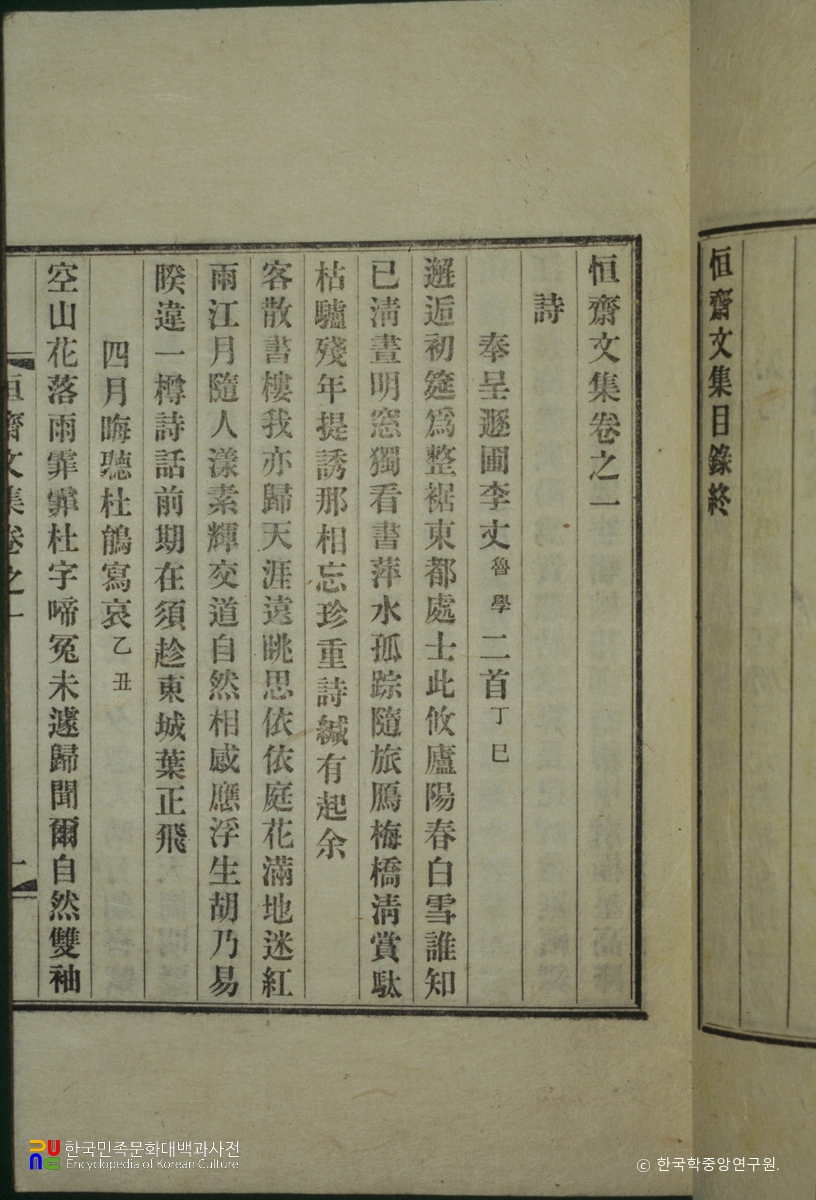 恒齋文集目錄終
恒齋文集卷之一
詩
奉呈遯圃李丈魯學二首丁巳
邂逅初筵爲整裾東都處士此攸廬陽春白雪誰知
已淸晝明窓獨看書萍水孤踪隨旅鴈梅橋淸賞駄
枯驢殘年提誘那相忘珍重詩緘有起余
客散書樓我亦歸天涯遠眺思依依庭花滿地迷紅
雨江月隨人漾素輝交道自然相感應浮生胡乃易
睽違一樽詩話前期在須趁東城葉正飛
四月晦聽杜鵑寫哀乙丑
空山花落雨霏霏杜宇啼冤未遽歸聞爾自然雙袖
恒齋文集卷之一
一
한국민족문화대백과사전
Encyclopedia of Korean Culture
© 한국학중앙연구원.